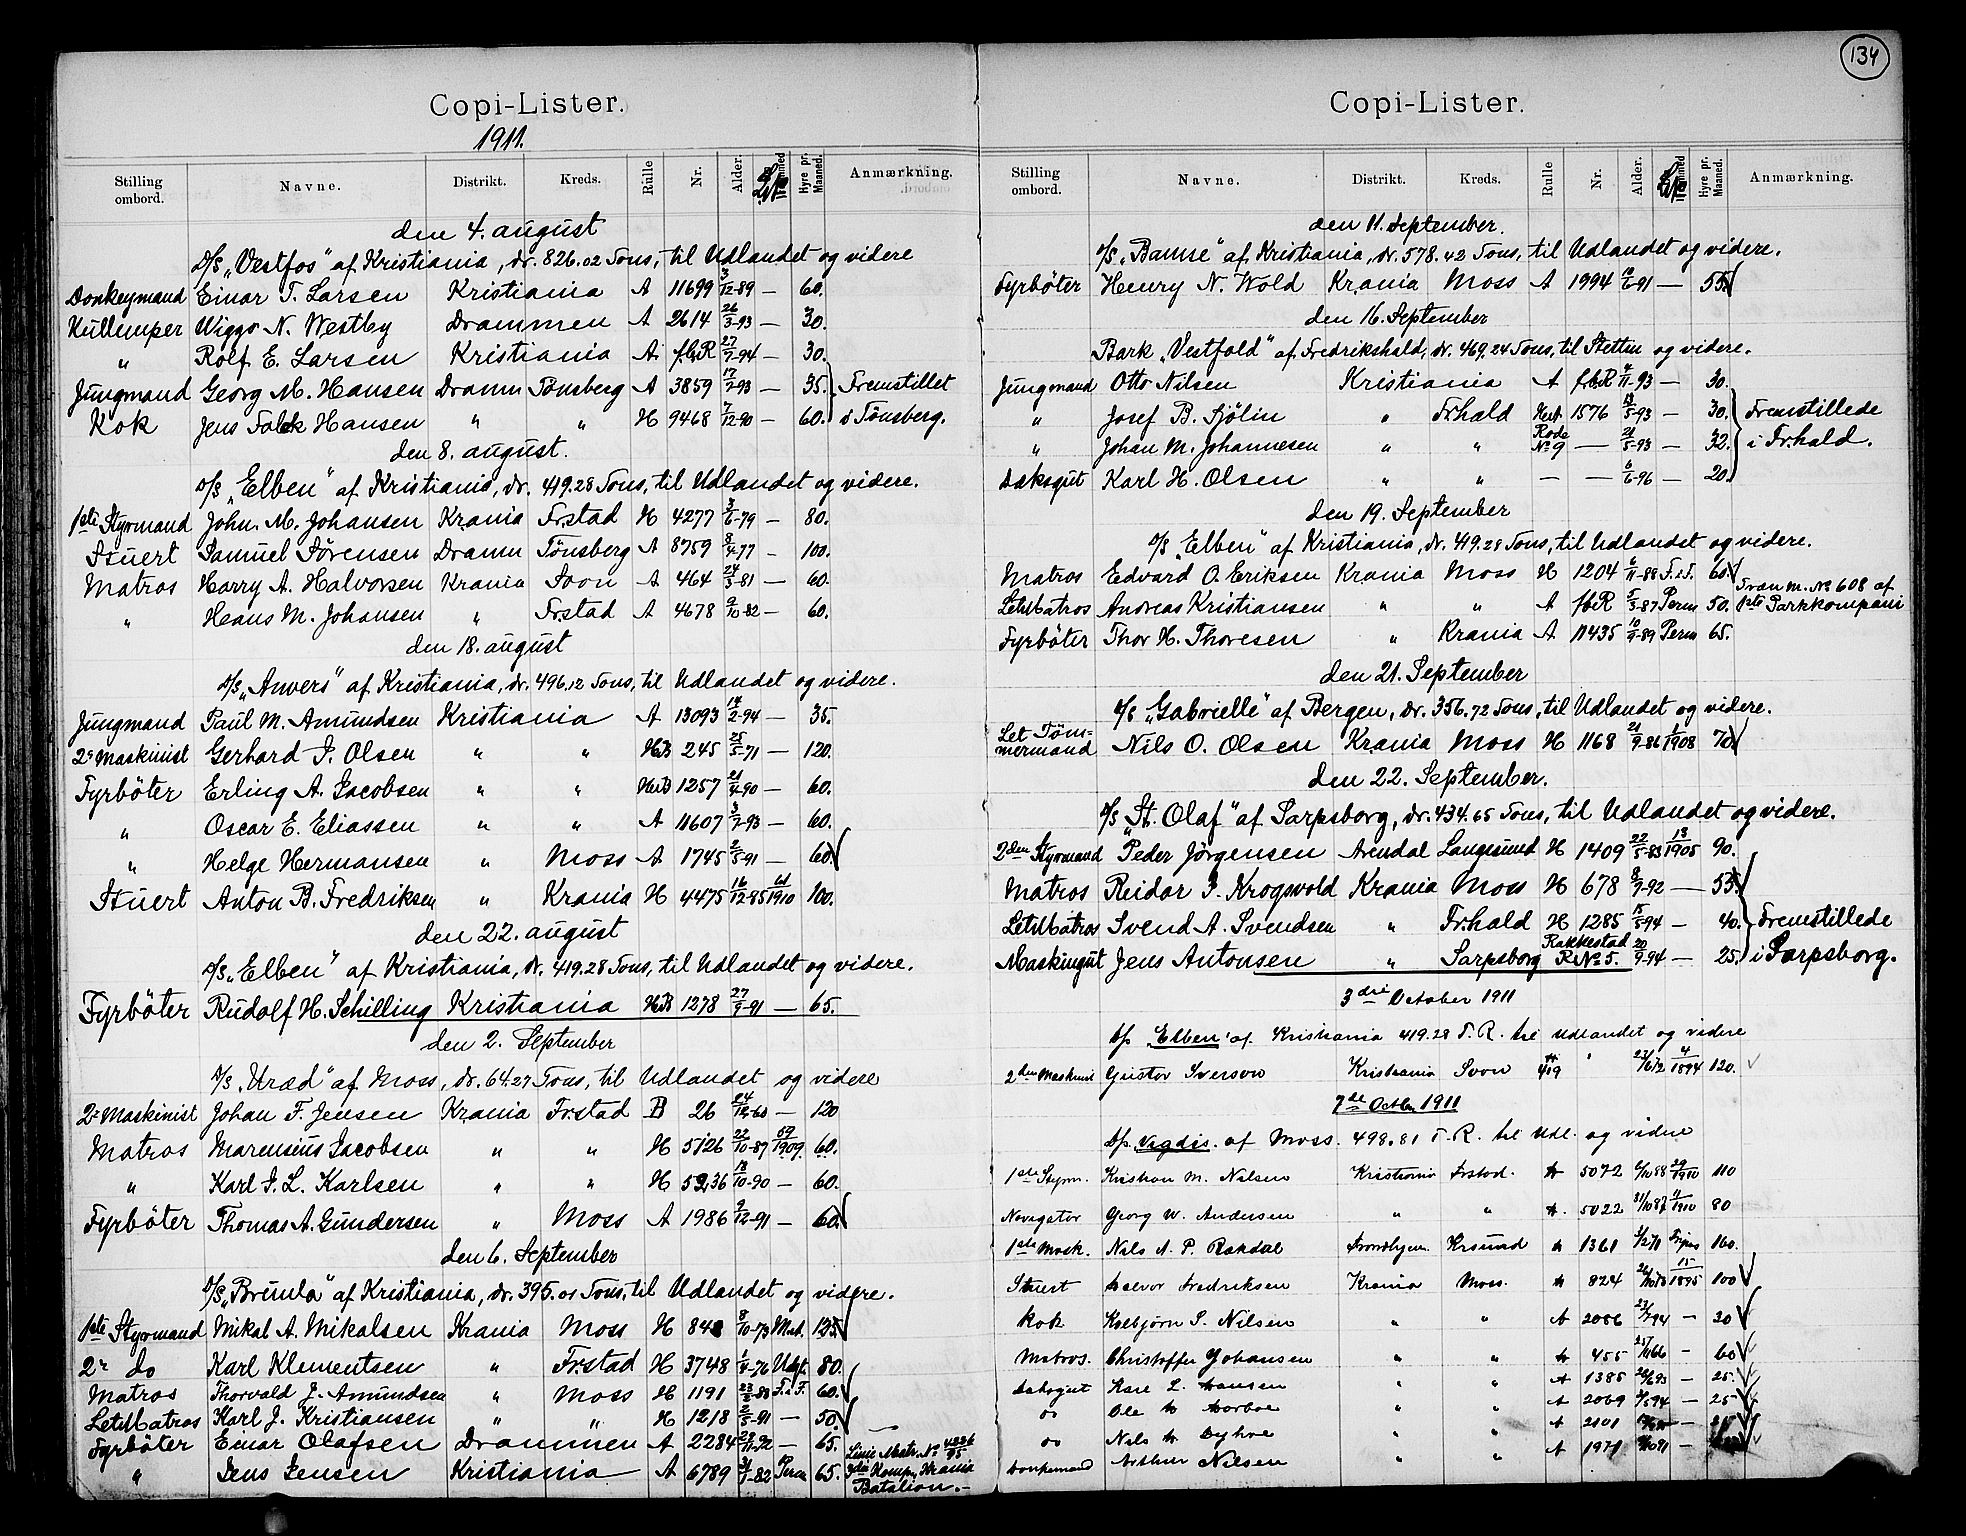 134
Copi-Lister.
1911.
Stilling ombord. Navne. Distrikt. Kreds. Rulle Nr. Alder. Hyre pr. Maaned. Anmærkning.
den 4. august
D/S „Vestfos" af Kristiania, dr. 826.02 Tons, til Udlandet og videre
Donkeymand Einar T. Larsen Kristiania A 11699 3/12-89 — 60.
Kullemper Wiggo N. Westby Drammen A 2614 26/3-93 — 30.
" Rolf E. Larsen Kristiania A fbR 27/9-94 — 30.
Jungmand Georg M. Hansen Dramm Tönsberg A 3859 17/7-93 — 35. Fremstillet
Kok Jens Falck Hansen " " H 9468 7/12-90 — 60. i Tönsberg.
den 8. august.
D/S „Elben" af Kristiania, dr. 419.28 Tons, til Udlandet og videre.
1ste Styrmand John. M. Johansen Krania Fr.stad H 4277 3/6-79 — 80.
Stuert Samuel Sörensen Dramm Tönsberg A 8759 8/4-77 — 100.
Matros Harry A. Halvorsen Krania Soon A 464 24/5-81 — 60.
" Hans M. Johansen " Frstad A 4678 9/10-82 — 60.
den 18. august
D/S „Anvers" af Kristiania, dr. 496.12 Tons, til Udlandet og videre.
Jungmand Paul M. Amundsen Kristiania A 13093 14/2-94 — 35.
2e Maskinist Gerhard J. Olsen " " HB 245 25/5-71 — 120.
Fyrböter Erling A. Jacobsen " " HB 1257 21/4-90 — 60.
" Oscar E. Eliassen " " A 11607 3/7-93 — 60.
" Helge Hermansen " Moss A 1745 2/5-91 — 60.
Stuert Anton B. Fredriksen " Krania H 4475 16/12-85 61/1910 100.
den 22. august
D/S „Elben" af Kristiania, dr. 419.28 Tons, til Udlandet og videre.
Fyrböter Rudolf H. Schilling Kristiania HB 1278 27/9-91 — 65.
den 2. September
D/S „Uræd" af Moss, dr. 64.27 Tons, til Udlandet og videre
2e Maskinist Johan F. Jensen Krania Frstad B 26 24/12-60 — 120
Matros Marensius Jacobsen " " H 5126 22/10-87 59/1909. 60.
" Karl J. L. Karlsen " " H 5236 18/10-90 — 60.
Fyrböter Thomas A. Gundersen " Moss A 1986 9/12-91 — 60.
den 6. September
D/S „Brumla" af Kristiania, dr. 395.01 Tons, til Udlandet og videre.
1ste Styrmand Mikal A. Mikalsen Krania Moss H 848 8/10-73 Mat. 125.
2n do Karl Klementsen " Frstad H 3748 1/4-76 Udgt. 80.
Matros Thorvald J. Amundsen " Moss H 1191 23/2-88 F.i F. 60.
LetMatros Karl J. Kristiansen " " H 1218 2/5-91 — 50.
Fyrböter Einar Olafsen Drammen A 2284 29/11-92 — 65. Linie Matr. No 4336/95
" Jens Jensen Kristiania A 6789 31/1-82 Perm 65. 3die Komp. Krania
Batalion.—
Copi-Lister.
Stilling ombord. Navne. Distrikt. Kreds. Rulle Nr. Alder. Hyre pr. Maaned. Anmærkning.
den 11. September.
D/S „Bamse" af Kristiania, dr. 578.42 Tons, til Udlandet og videre.
Fyrböter Henry N. Wold Krania Moss A 1994 19/6-91 — 55.
den 16. September
Bark „Vestfold" af Fredrikshald, dr. 469.24 Tons, til Stettin og videre.
Jungmand Otto Nilsen Kristiania A fbR 4/11-93 — 30.
" Josef B. Sjölin " Fr.hald Hvt. 1576 13/5-93 — 30. Fremstillede
" Johan M. Johannesen " " Rode No 9 — 21/5-93 — 32. i Fr.hald.
Dæksgut Karl H. Olsen " " — — 6/6-96 — 20.
den 19. September
D/S „Elben" af Kristiania, dr. 419.28 Tons, til Udlandet og videre.
Matros Edvard O. Eriksen Krania Moss H 1204 6/11-88 F.i F. 60.
LetMatros Andreas Kristiansen " " A fbR 5/3-87 Perm 50. Træn M. No 608 af 1ste Parkkompani
Fyrböter Thor H. Thoresen " Krania A 11435 10/9-89 Perm 65.
den 21. September
D/S „Gabrielle" af Bergen, dr. 356.72 Tons, til Udlandet og videre.
Let Töm-
mermand Nils O. Olsen Krania Moss H 1168 21/9-86 1/1908 70.
den 22. September.
D/S „St. Olaf" af Sarpsborg, dr. 434.65 Tons, til Udlandet og videre.
2den Styrmand Peder Jörgensen Arendal Langesund H 1409 22/5-83 13/1905 90.
Matros Reidar J. Krogsvold Krania Moss H 678 8/7-92 — 55.
LetMatros Svend A. Svendsen " Fr.hald H 1285 15/5-94 — 40. Fremstillede
Maskingut Jens Antonsen " Sarpsborg Rakkestad R No 5. 20/9-94 — 25. i Sarpsborg.
3die October 1911
D/s „Elben" af Kristiania 419.28 T. R. til Udlandet og videre
2den Maskinist Gustav Iversen Kristiania Soon H 419 " 23/6 72 4/1894 120.
7de Octbr 1911
D/s Vigdis. af Moss. 498.81 T. R. til Udl. og videre
1ste Styrm. Kristian M. Nilsen Kristiania Frstad. H 5072 6/10 88 29/1910 110
Navigatör Georg W. Andersen " " H. 5022 31/10 87 11/1910 80
1ste Mask. Nils A. P. Rakdal Trondhjem Krsund H 1361 1/2 71 160.
Stuert Halvor Fredriksen Krania Moss. H 824 15/1895 100
Kok Kolbjörn S. Nilsen " " A 2086 23/7 94 — 30
Matros. Christoffer Johansen " " H 455 25/11 66 — 60
Dæksgut Kare L. Hansen " " A 1385 — 25.
do Ole H " " A 2069 — 25
do Nils H Dyhre " " A 2101
Donkemand Arthur Nilsen " " A 1971 —